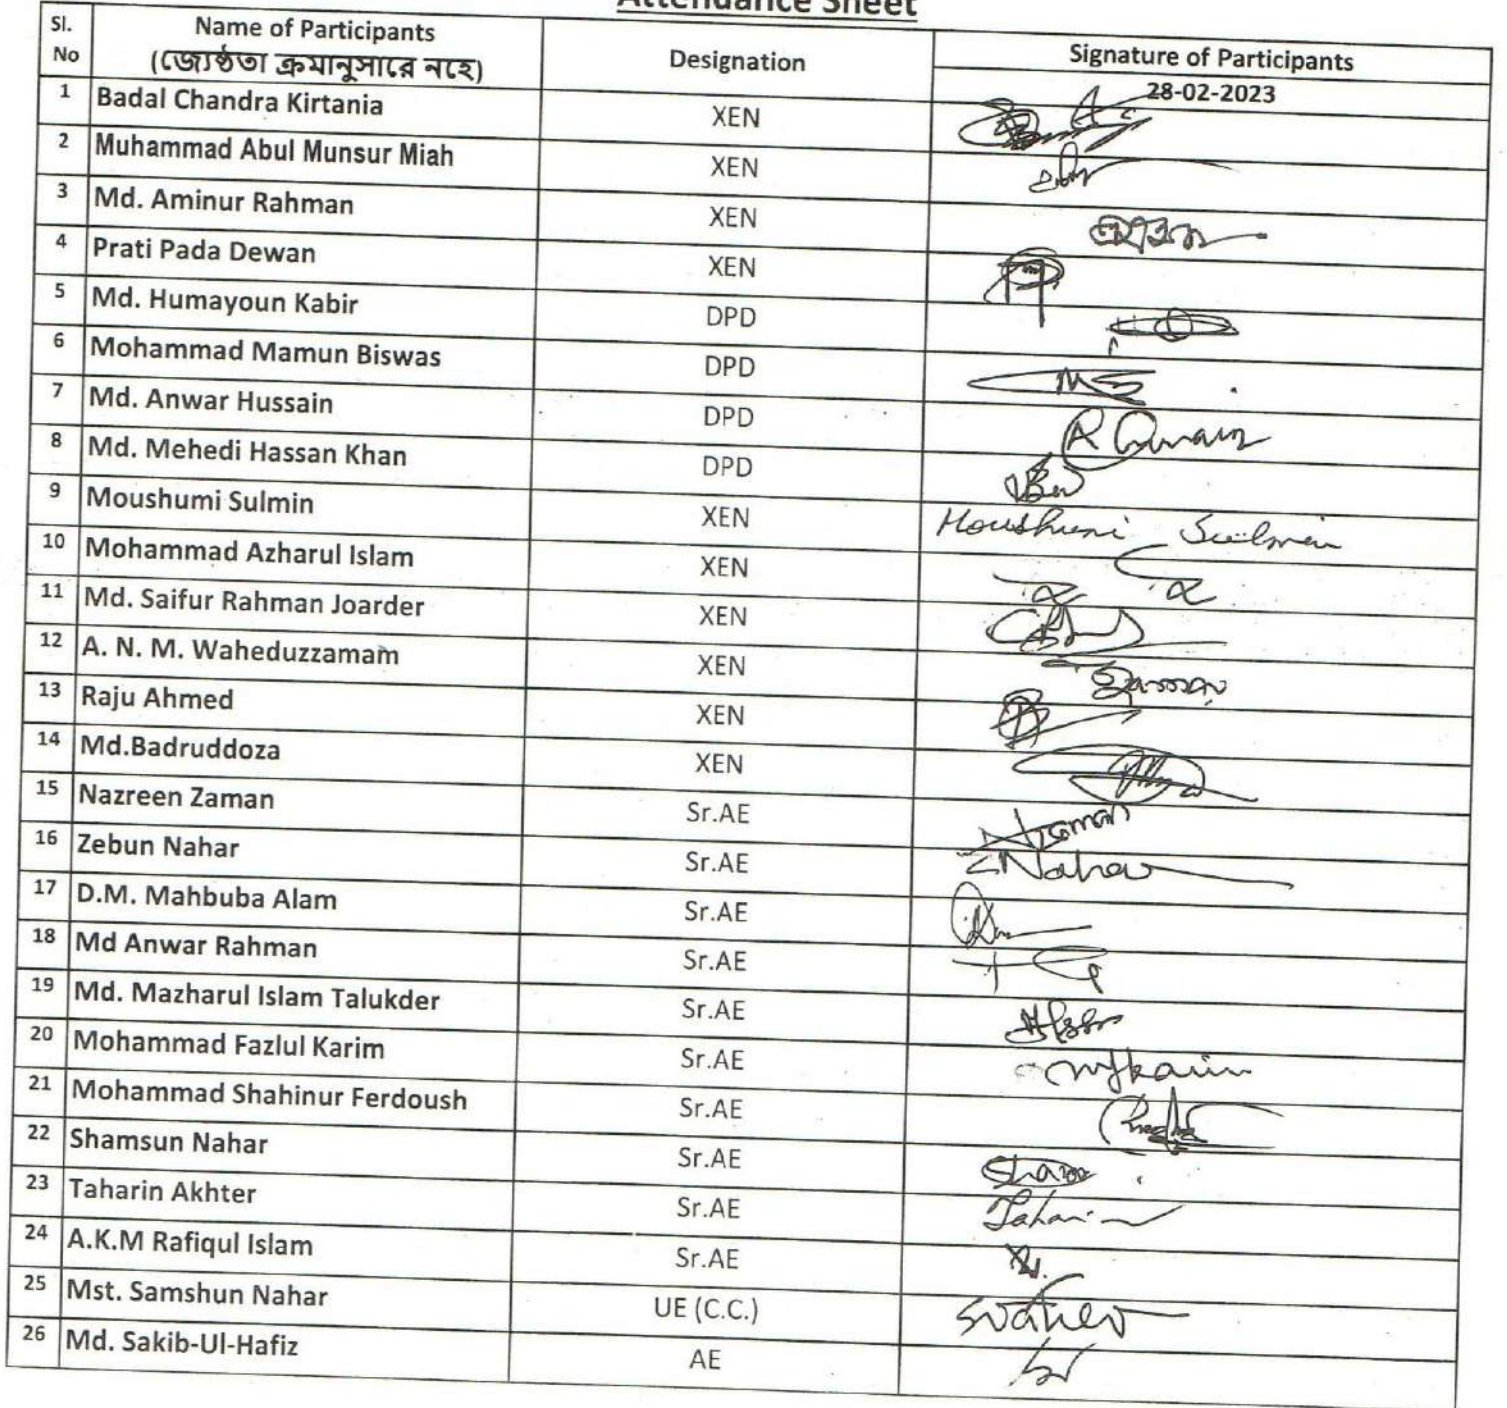 Attendance Sheet
Sl. No | Name of Participants (জ্যেষ্ঠতা ক্রমানুসারে নহে) | Designation | Signature of Participants
28-02-2023
1 Badal Chandra Kirtania XEN
2 Muhammad Abul Munsur Miah XEN
3 Md. Aminur Rahman XEN
4 Prati Pada Dewan XEN
5 Md. Humayoun Kabir DPD
6 Mohammad Mamun Biswas DPD
7 Md. Anwar Hussain DPD
8 Md. Mehedi Hassan Khan DPD
9 Moushumi Sulmin XEN Moushumi Sulmin
10 Mohammad Azharul Islam XEN
11 Md. Saifur Rahman Joarder XEN
12 A. N. M. Waheduzzamam XEN Zaman
13 Raju Ahmed XEN
14 Md.Badruddoza XEN
15 Nazreen Zaman Sr.AE NZaman
16 Zebun Nahar Sr.AE ZNahar
17 D.M. Mahbuba Alam Sr.AE
18 Md Anwar Rahman Sr.AE
19 Md. Mazharul Islam Talukder Sr.AE
20 Mohammad Fazlul Karim Sr.AE mfkarim
21 Mohammad Shahinur Ferdoush Sr.AE
22 Shamsun Nahar Sr.AE
23 Taharin Akhter Sr.AE Taharin
24 A.K.M Rafiqul Islam Sr.AE
25 Mst. Samshun Nahar UE (C.C.)
26 Md. Sakib-Ul-Hafiz AE